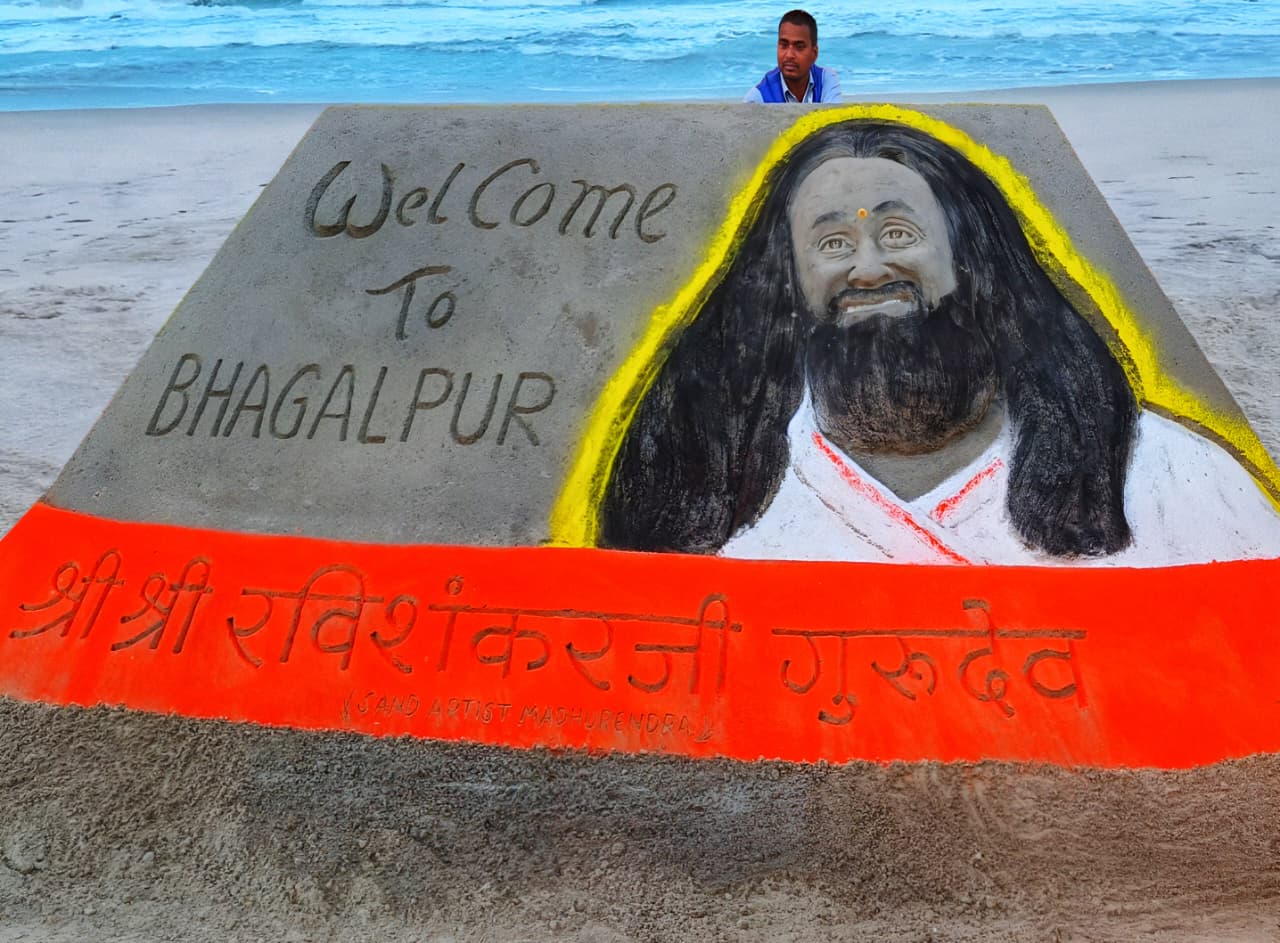 WelCome
To
BHAGALPUR
श्री श्री रविशंकरजी गुरुदेव
(SAND ARTIST MADHURENDRA)